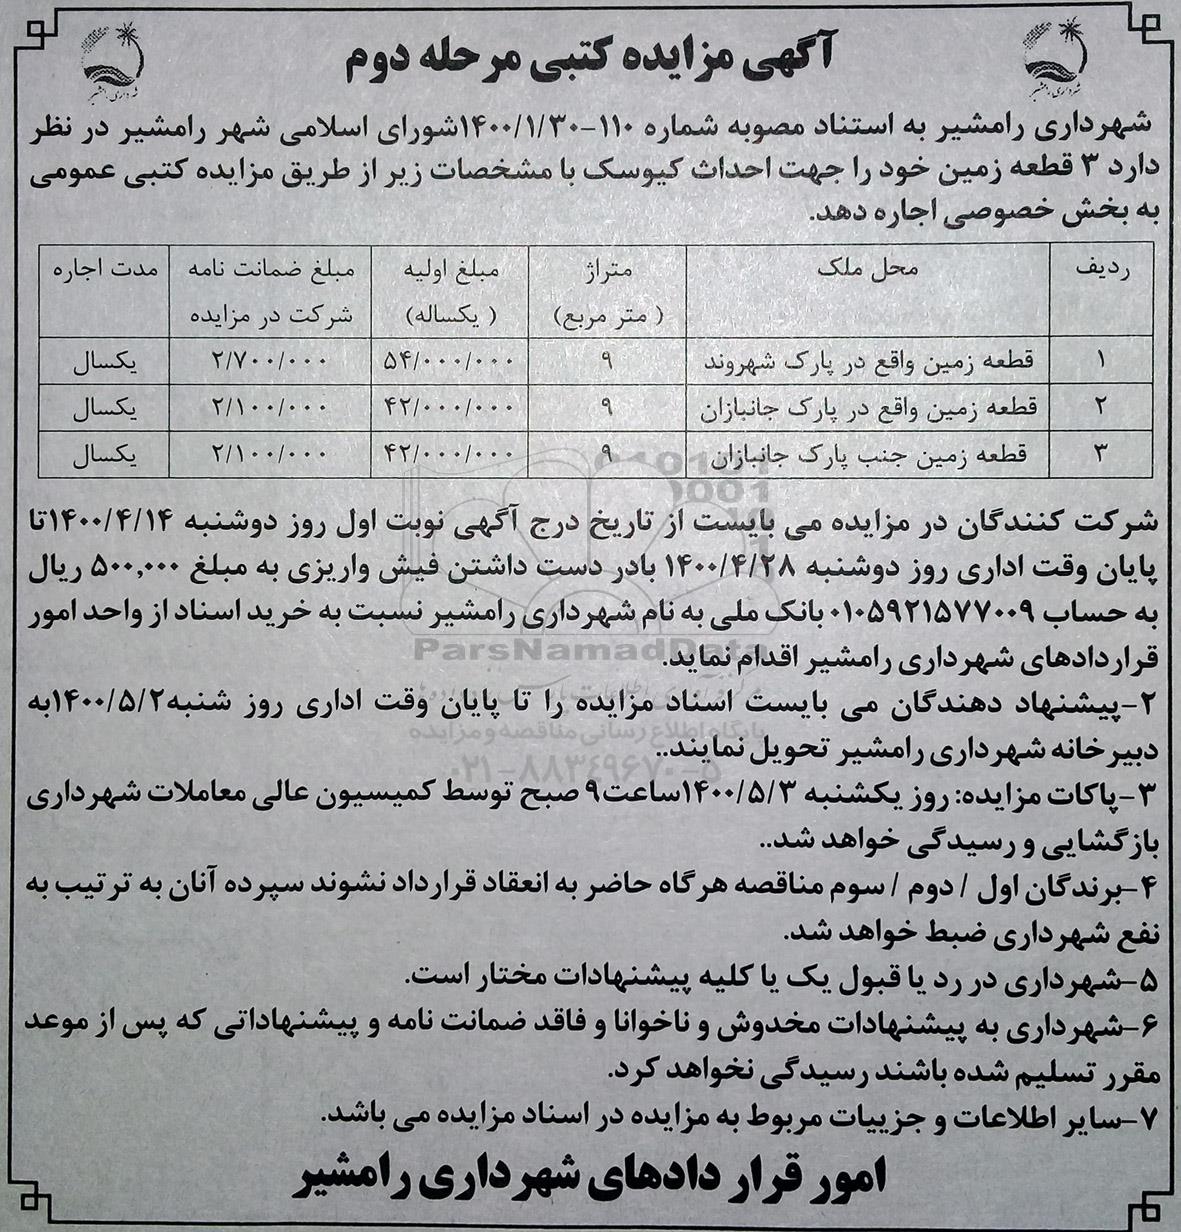 آگهی مزایده کتبی مرحله دوم
شهرداری رامشیر
شهرداری رامشیر
شهرداری رامشیر به استناد مصوبه شماره ۱۱۰-۱۴۰۰/۱/۳۰شورای اسلامی شهر رامشیر در نظر
دارد ۳ قطعه زمین خود را جهت احداث کیوسک با مشخصات زیر از طریق مزایده کتبی عمومی
به بخش خصوصی اجاره دهد.
ردیف محل ملک متراژ مبلغ اولیه مبلغ ضمانت نامه مدت اجاره
( متر مربع) ( یکساله) شرکت در مزایده
۱ قطعه زمین واقع در پارک شهروند ۹ ۵۴/۰۰۰/۰۰۰ ۲/۷۰۰/۰۰۰ یکسال
۲ قطعه زمین واقع در پارک جانبازان ۹ ۴۲/۰۰۰/۰۰۰ ۲/۱۰۰/۰۰۰ یکسال
۳ قطعه زمین جنب پارک جانبازان ۹ ۴۲/۰۰۰/۰۰۰ ۲/۱۰۰/۰۰۰ یکسال
شرکت کنندگان در مزایده می بایست از تاریخ درج آگهی نوبت اول روز دوشنبه ۱۴۰۰/۴/۱۴تا
پایان وقت اداری روز دوشنبه ۱۴۰۰/۴/۲۸ بادر دست داشتن فیش واریزی به مبلغ ۵۰۰,۰۰۰ ریال
به حساب ۰۱۰۵۹۲۱۵۷۷۰۰۹ بانک ملی به نام شهرداری رامشیر نسبت به خرید اسناد از واحد امور
قراردادهای شهرداری رامشیر اقدام نماید.
ParsNamadData
۲-پیشنهاد دهندگان می بایست اسناد مزایده را تا پایان وقت اداری روز شنبه۱۴۰۰/۵/۲به
پایگاه اطلاع رسانی مناقصه و مزایده
دبیرخانه شهرداری رامشیر تحویل نمایند..
۰۲۱-۸۸۳۴۹۶۷۰-۵
۳-پاکات مزایده: روز یکشنبه ۱۴۰۰/۵/۳ساعت۹ صبح توسط کمیسیون عالی معاملات شهرداری
بازگشایی و رسیدگی خواهد شد..
۴-برندگان اول / دوم / سوم مناقصه هرگاه حاضر به انعقاد قرارداد نشوند سپرده آنان به ترتیب به
نفع شهرداری ضبط خواهد شد.
۵-شهرداری در رد یا قبول یک یا کلیه پیشنهادات مختار است.
۶-شهرداری به پیشنهادات مخدوش و ناخوانا و فاقد ضمانت نامه و پیشنهاداتی که پس از موعد
مقرر تسلیم شده باشند رسیدگی نخواهد کرد.
۷-سایر اطلاعات و جزییات مربوط به مزایده در اسناد مزایده می باشد.
امور قرار دادهای شهرداری رامشیر